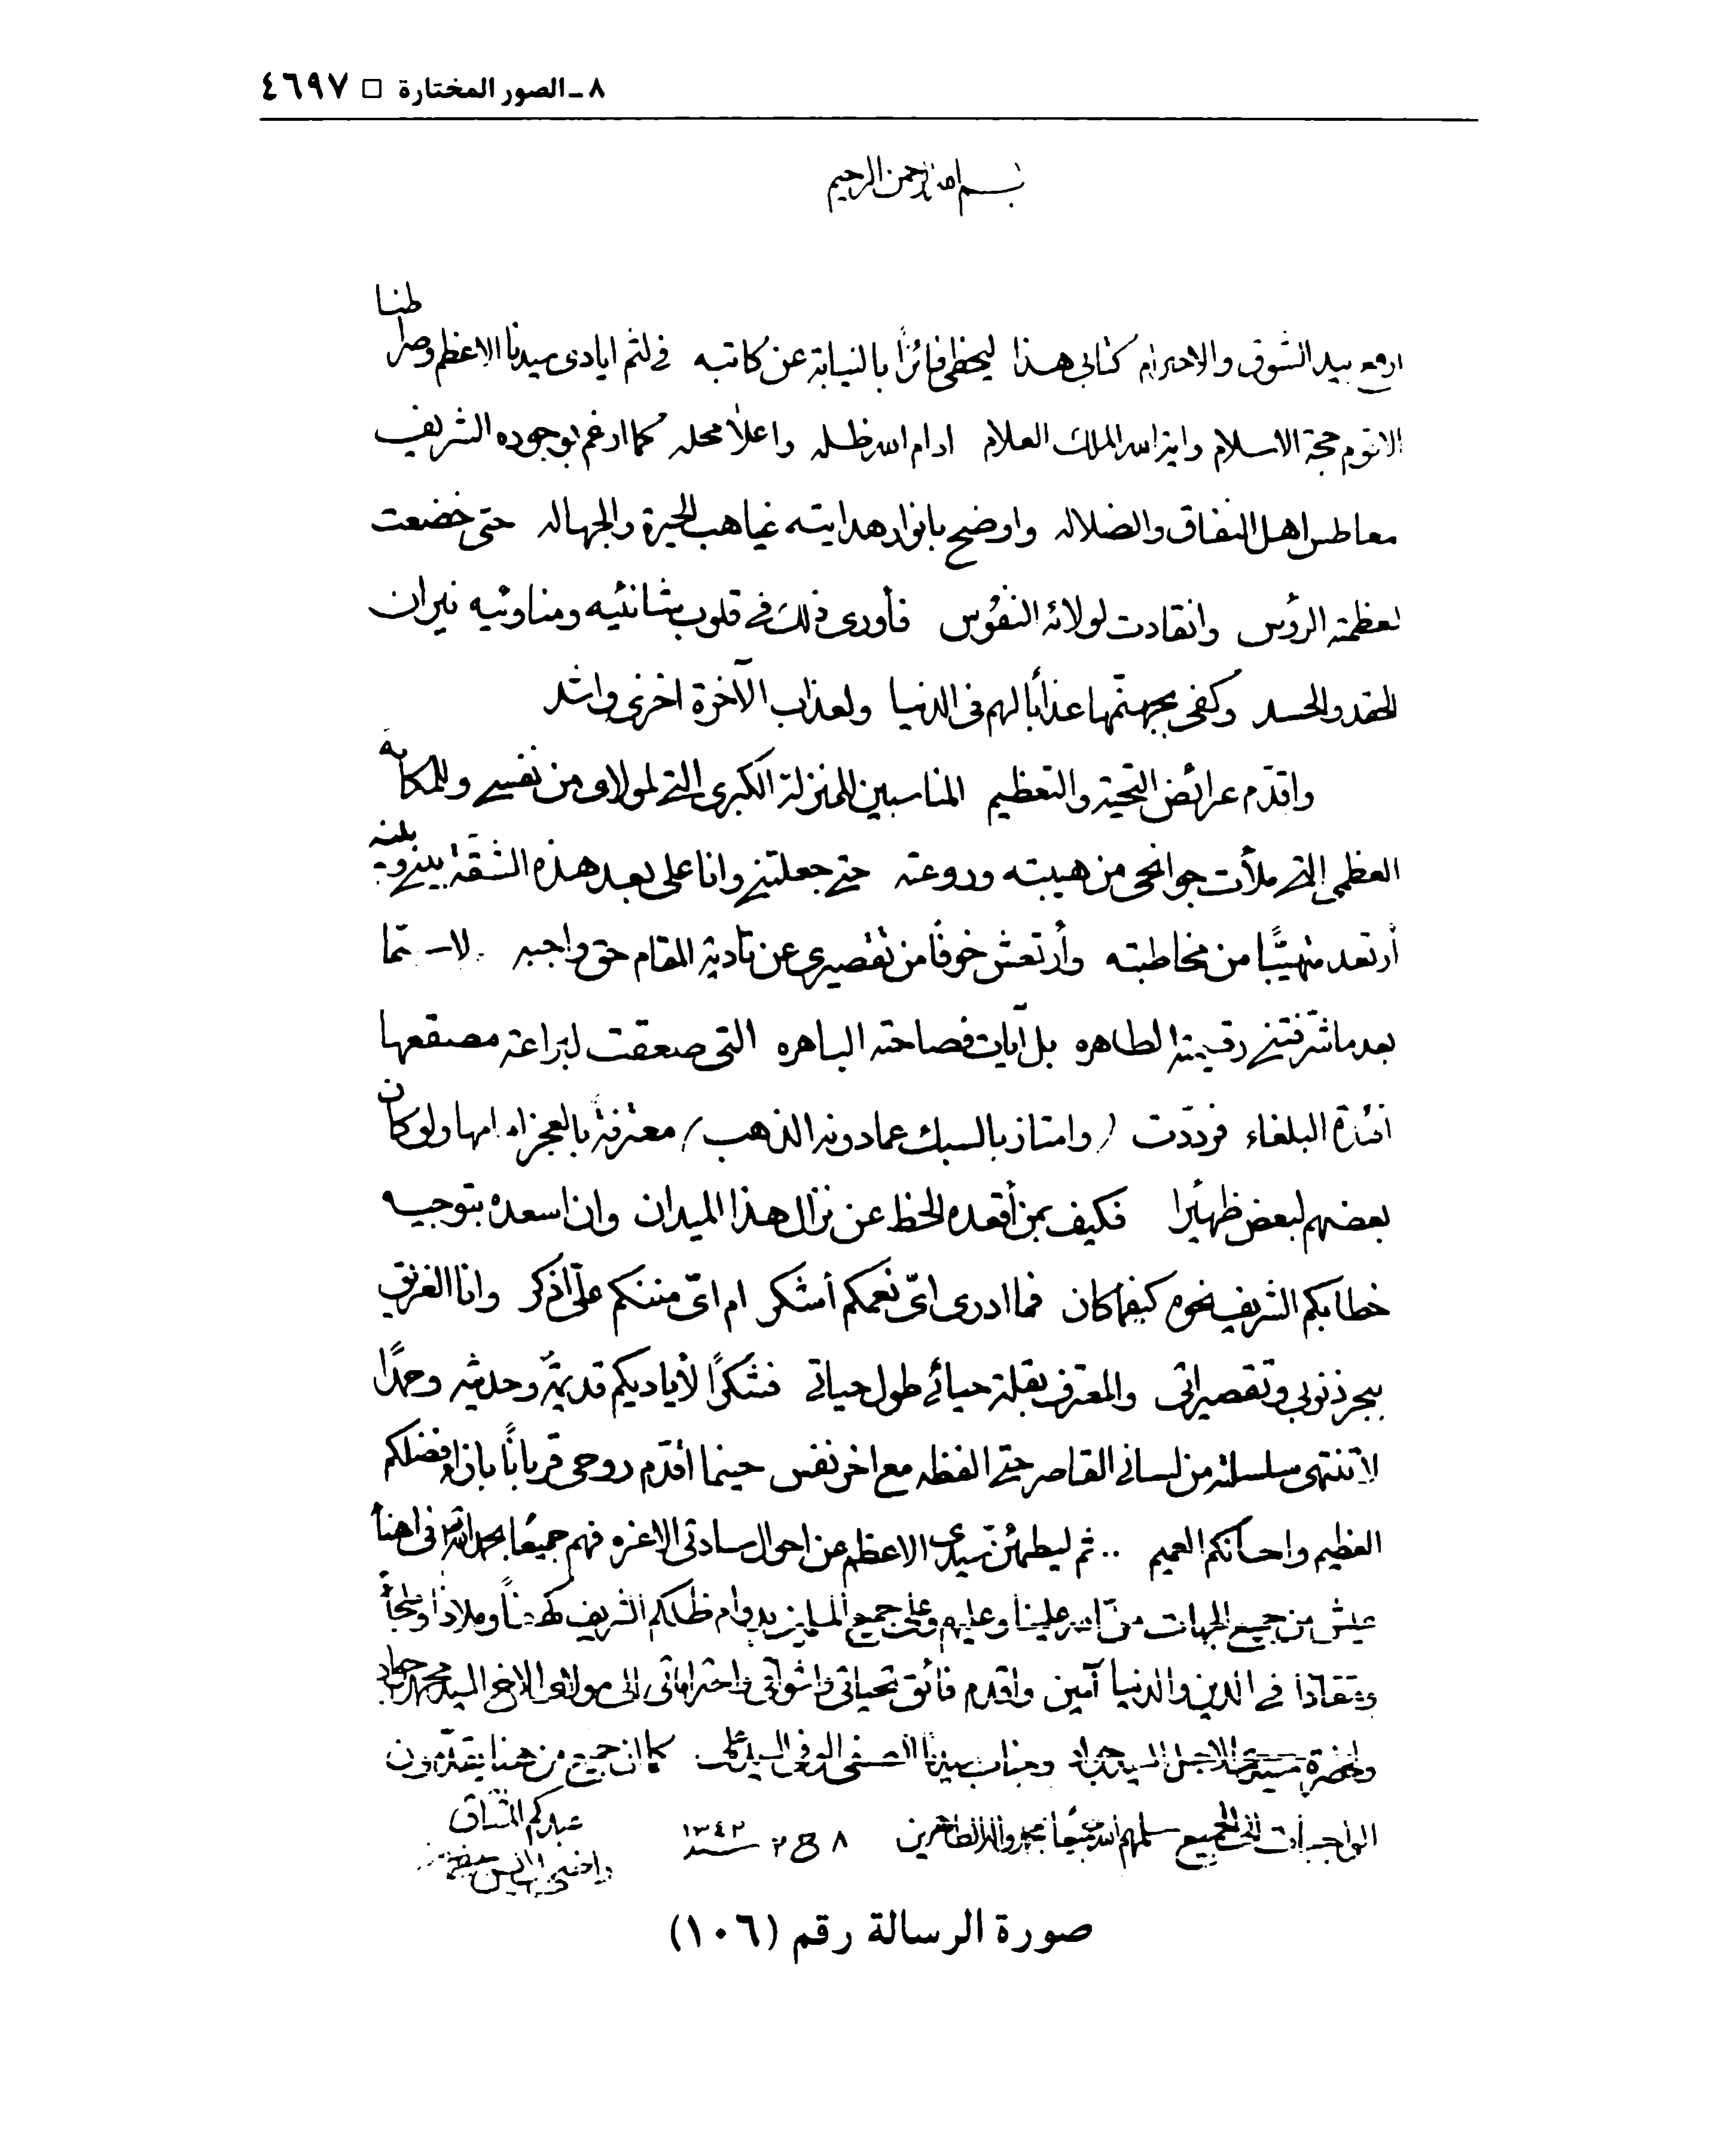 ٨ ـ الصور المختارة □ ٤٦٩٧
بسم الله الرحمن الرحيم
ارفع بيد الشوق والاحترام كتابي هذا ليحظى فائزًا بالنيابة عن كاتبه في لثم ايادى سيدنا الاعظم وصراطنا
الاقوم حجة الاسلام واية الله الملك العلام ادام الله ظله واعلا محله كما ارغم بوجوده الشريف
معاطس اهل النفاق والضلاله واوضح بانوار هدايته غياهب الحيرة والجهاله حتى خضعت
لعظمته الرؤس وانقادت لولائه النفوس فأورى ذلك في قلوب شانئيه ومناوئيه نيران
الحقد والحسد وكفى بجهنمها عذابًا لهم في الدنيا ولعذاب الآخرة اخزى واشد
واقدّم عرائض التحية والتعظيم المناسبين للمنزلة الكبرى التي لمولاى من نفسي وللمكانة
العظمى التي ملأت جوانحي من هيبته وروعته حتى جعلتني وانا على بعد هذه الشقة بيني وبينه
أرتعد متهيّبًا من مخاطبته وأرتعش خوفًا من تقصيرى عن تادية المقام حق واجبه لا سيّما
بعد ما شرّفتني رقيمته الطاهره بل آيات فصاحته الباهره التي صعقت لبراعة مصقعها
افئدة البلغاء فردّدت (وامتاز بالسبك عما دونه الذهب) معترفة بالعجز امامها ولو كان
بعضهم لبعض ظهيرا فكيف بمن أقعده الحظ عن نزال هذا الميدان وان اسعده بتوجيه
خطابكم الشريف نحوه كيفما كان فما ادرى ايّ نعمكم أشكر ام ايّ مننكم عليّ اذكر وانا الغريق
ببحر ذنوبي وتقصيراتي والمعترف بقلة حيائي طول حياتي فشكرًا لأياديكم قديمة وحديثه وحمدًا
لا تنتهى سلسلته من لساني القاصر حتى الفظه مع اخر نفس حينما أقدّم روحي قربانًا بازاء فضلكم
العظيم واحسانكم العميم .. ثم ليطمئن سيدى الاعظم عن احوال سادتي الاعزه فهم جميعًا بحمد الله في اهنأ
عيش من جميع الجهات منّ الله علينا وعليهم وعلى جميع المسلمين بدوام ظلكم الشريف كهفًا وملاذًا وملجأ
ومنقذا في الدين والدنيا آمين واقدم فائق تحياتي واشواقي واحتراماتي الى مولاى الاخ السيد محمد جواد
ولحضرة الاجل السيد وجناب سيدنا الصفي الوفي السيد كما ان جميع من هنا يقدّمون
الواجبات الى الجميع سلمهم الله جميعًا بمحمد واله الطاهرين ٨ ج ٢ سنة ١٣٤٢
عبدكم المشتاق
صورة الرسالة رقم (١٠٦)